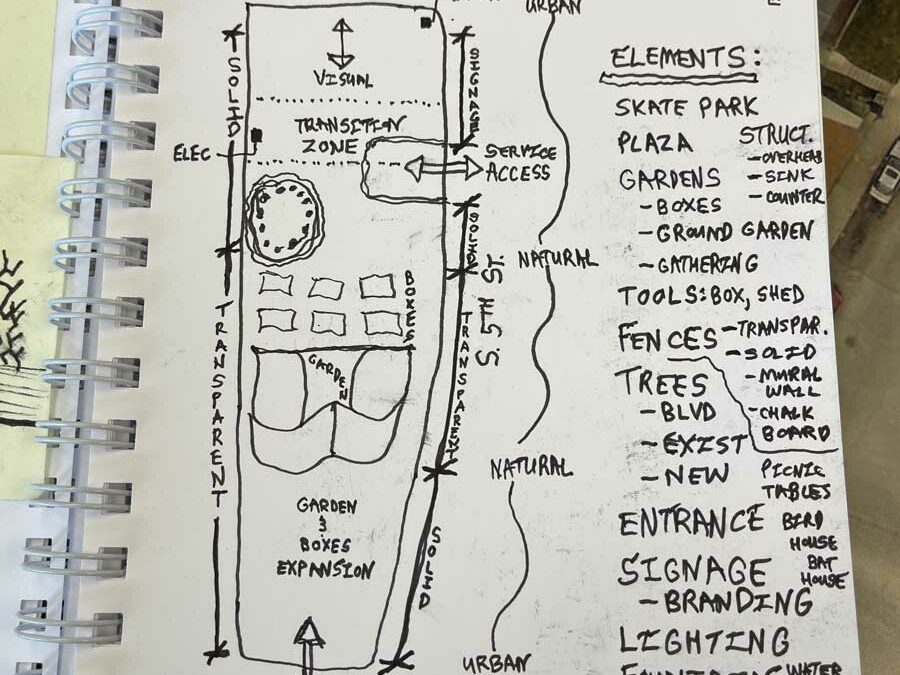 URBAN
SOLID
VISUAL
SIGNAGE
TRANSITION
ZONE
ELEC
SERVICE
ACCESS
SOLID
NATURAL
S 5TH ST
BOXES
TRANSPARENT
GARDEN
TRANSPARENT
NATURAL
GARDEN
&
BOXES
EXPANSION
SOLID
URBAN
ELEMENTS:
SKATE PARK
PLAZA
STRUCT.
- OVERHEAD
- SINK
- COUNTER
GARDENS
- BOXES
- GROUND GARDEN
- GATHERING
TOOLS: BOX, SHED
FENCES - TRANSPAR.
- SOLID
- MURAL
WALL
- CHALK
BOARD
TREES
- BLVD
- EXIST
- NEW
PICNIC
TABLES
ENTRANCE
BIRD
HOUSE
BAT
HOUSE
SIGNAGE
- BRANDING
LIGHTING
WATER